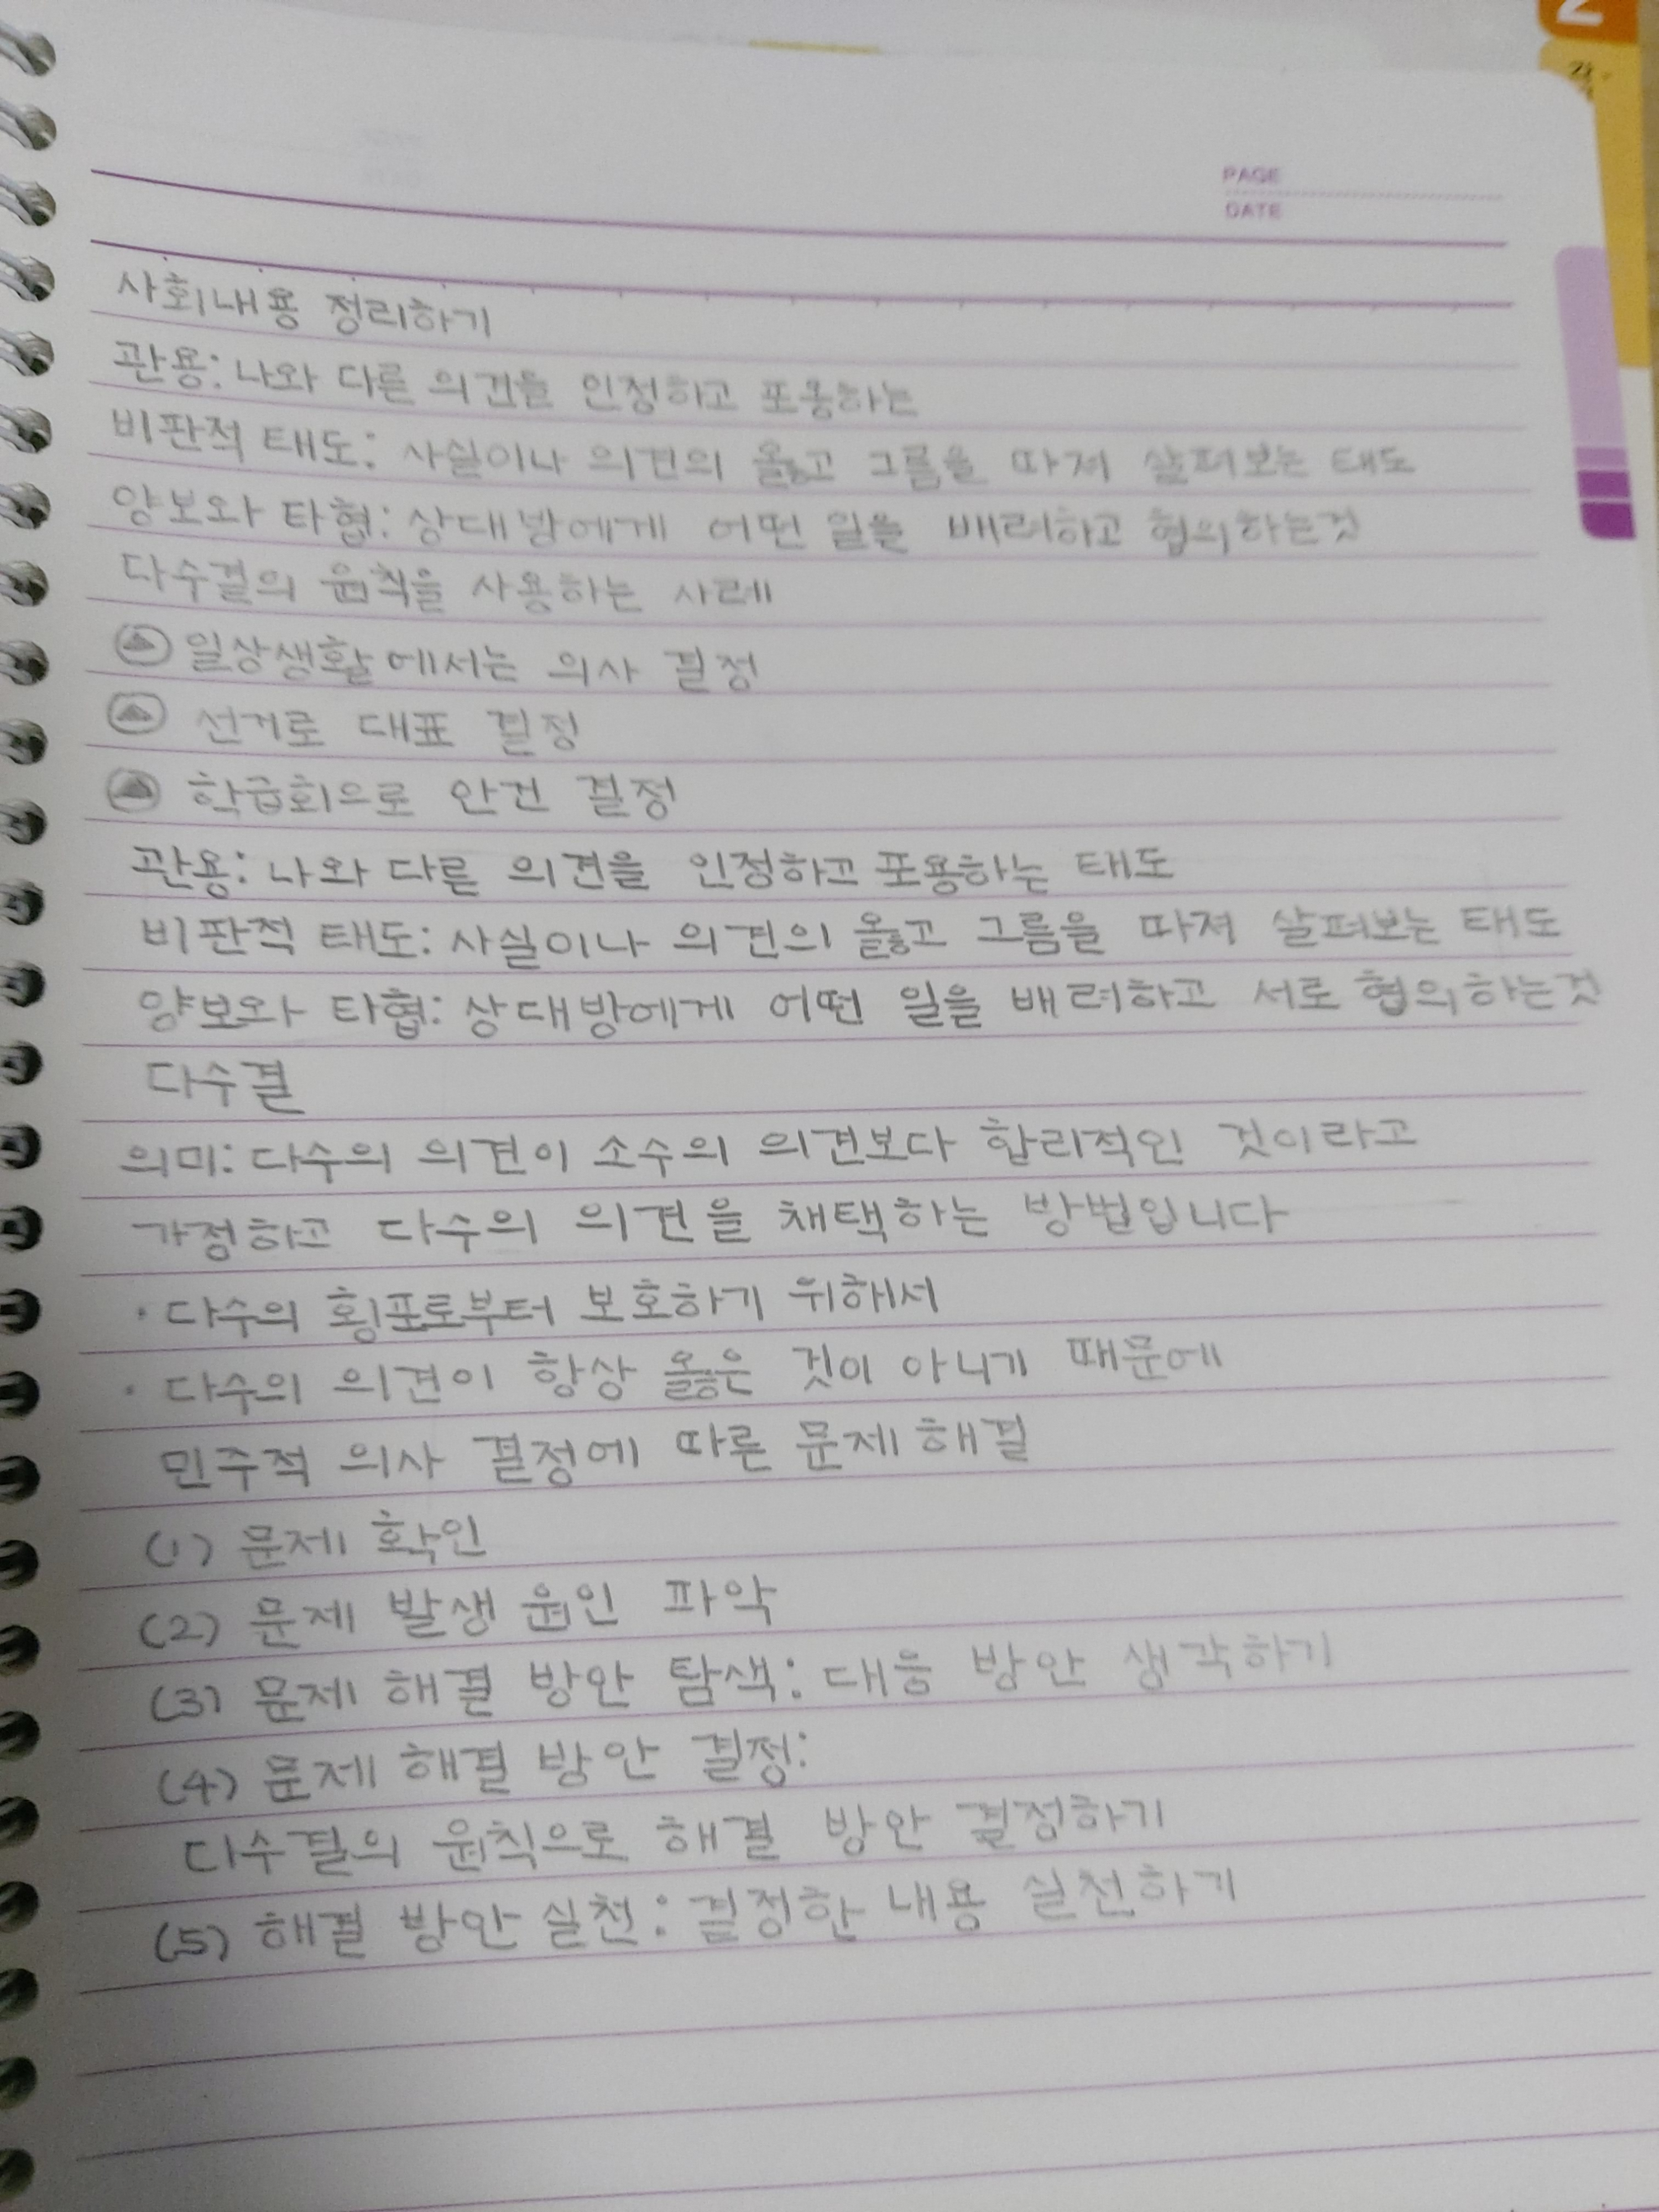 2
PAGE
DATE
사회내용 정리하기
관용: 나와 다른 의견을 인정하고 포용하는
비판적 태도: 사실이나 의견의 옳고 그름을 따져 살펴보는 태도
양보와 타협: 상대방에게 어떤 일을 배려하고 협의하는것
다수결의 원칙을 사용하는 사례
일상생활에서는 의사 결정
선거로 대표 결정
학급회으로 안건 결정
관용: 나와 다른 의견을 인정하고 포용하는 태도
비판적 태도: 사실이나 의견의 옳고 그름을 따져 살펴보는 태도
양보와 타협: 상대방에게 어떤 일을 배려하고 서로 협의하는것
다수결
의미: 다수의 의견이 소수의 의견보다 합리적인 것이라고
가정하고 다수의 의견을 채택하는 방법입니다
· 다수의 횡포로부터 보호하기 위해서
· 다수의 의견이 항상 옳은 것이 아니기 때문에
민주적 의사 결정에 따른 문제 해결
(1) 문제 확인
(2) 문제 발생 원인 파악
(3) 문제 해결 방안 탐색: 대응 방안 생각하기
(4) 문제 해결 방안 결정:
다수결의 원칙으로 해결 방안 결정하기
(5) 해결 방안 실천: 결정한 내용 실천하기